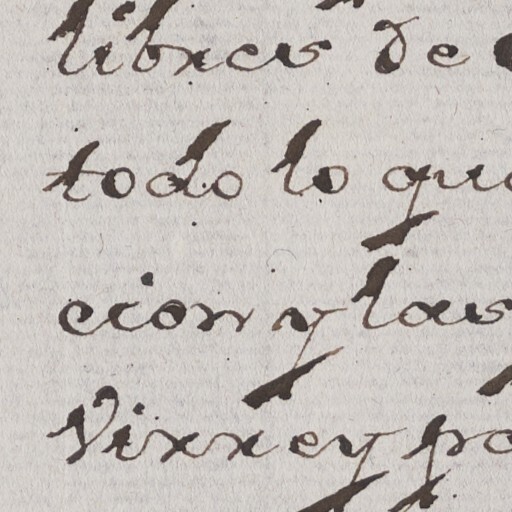 libres de
todo lo qu
cion y las
Virrey po